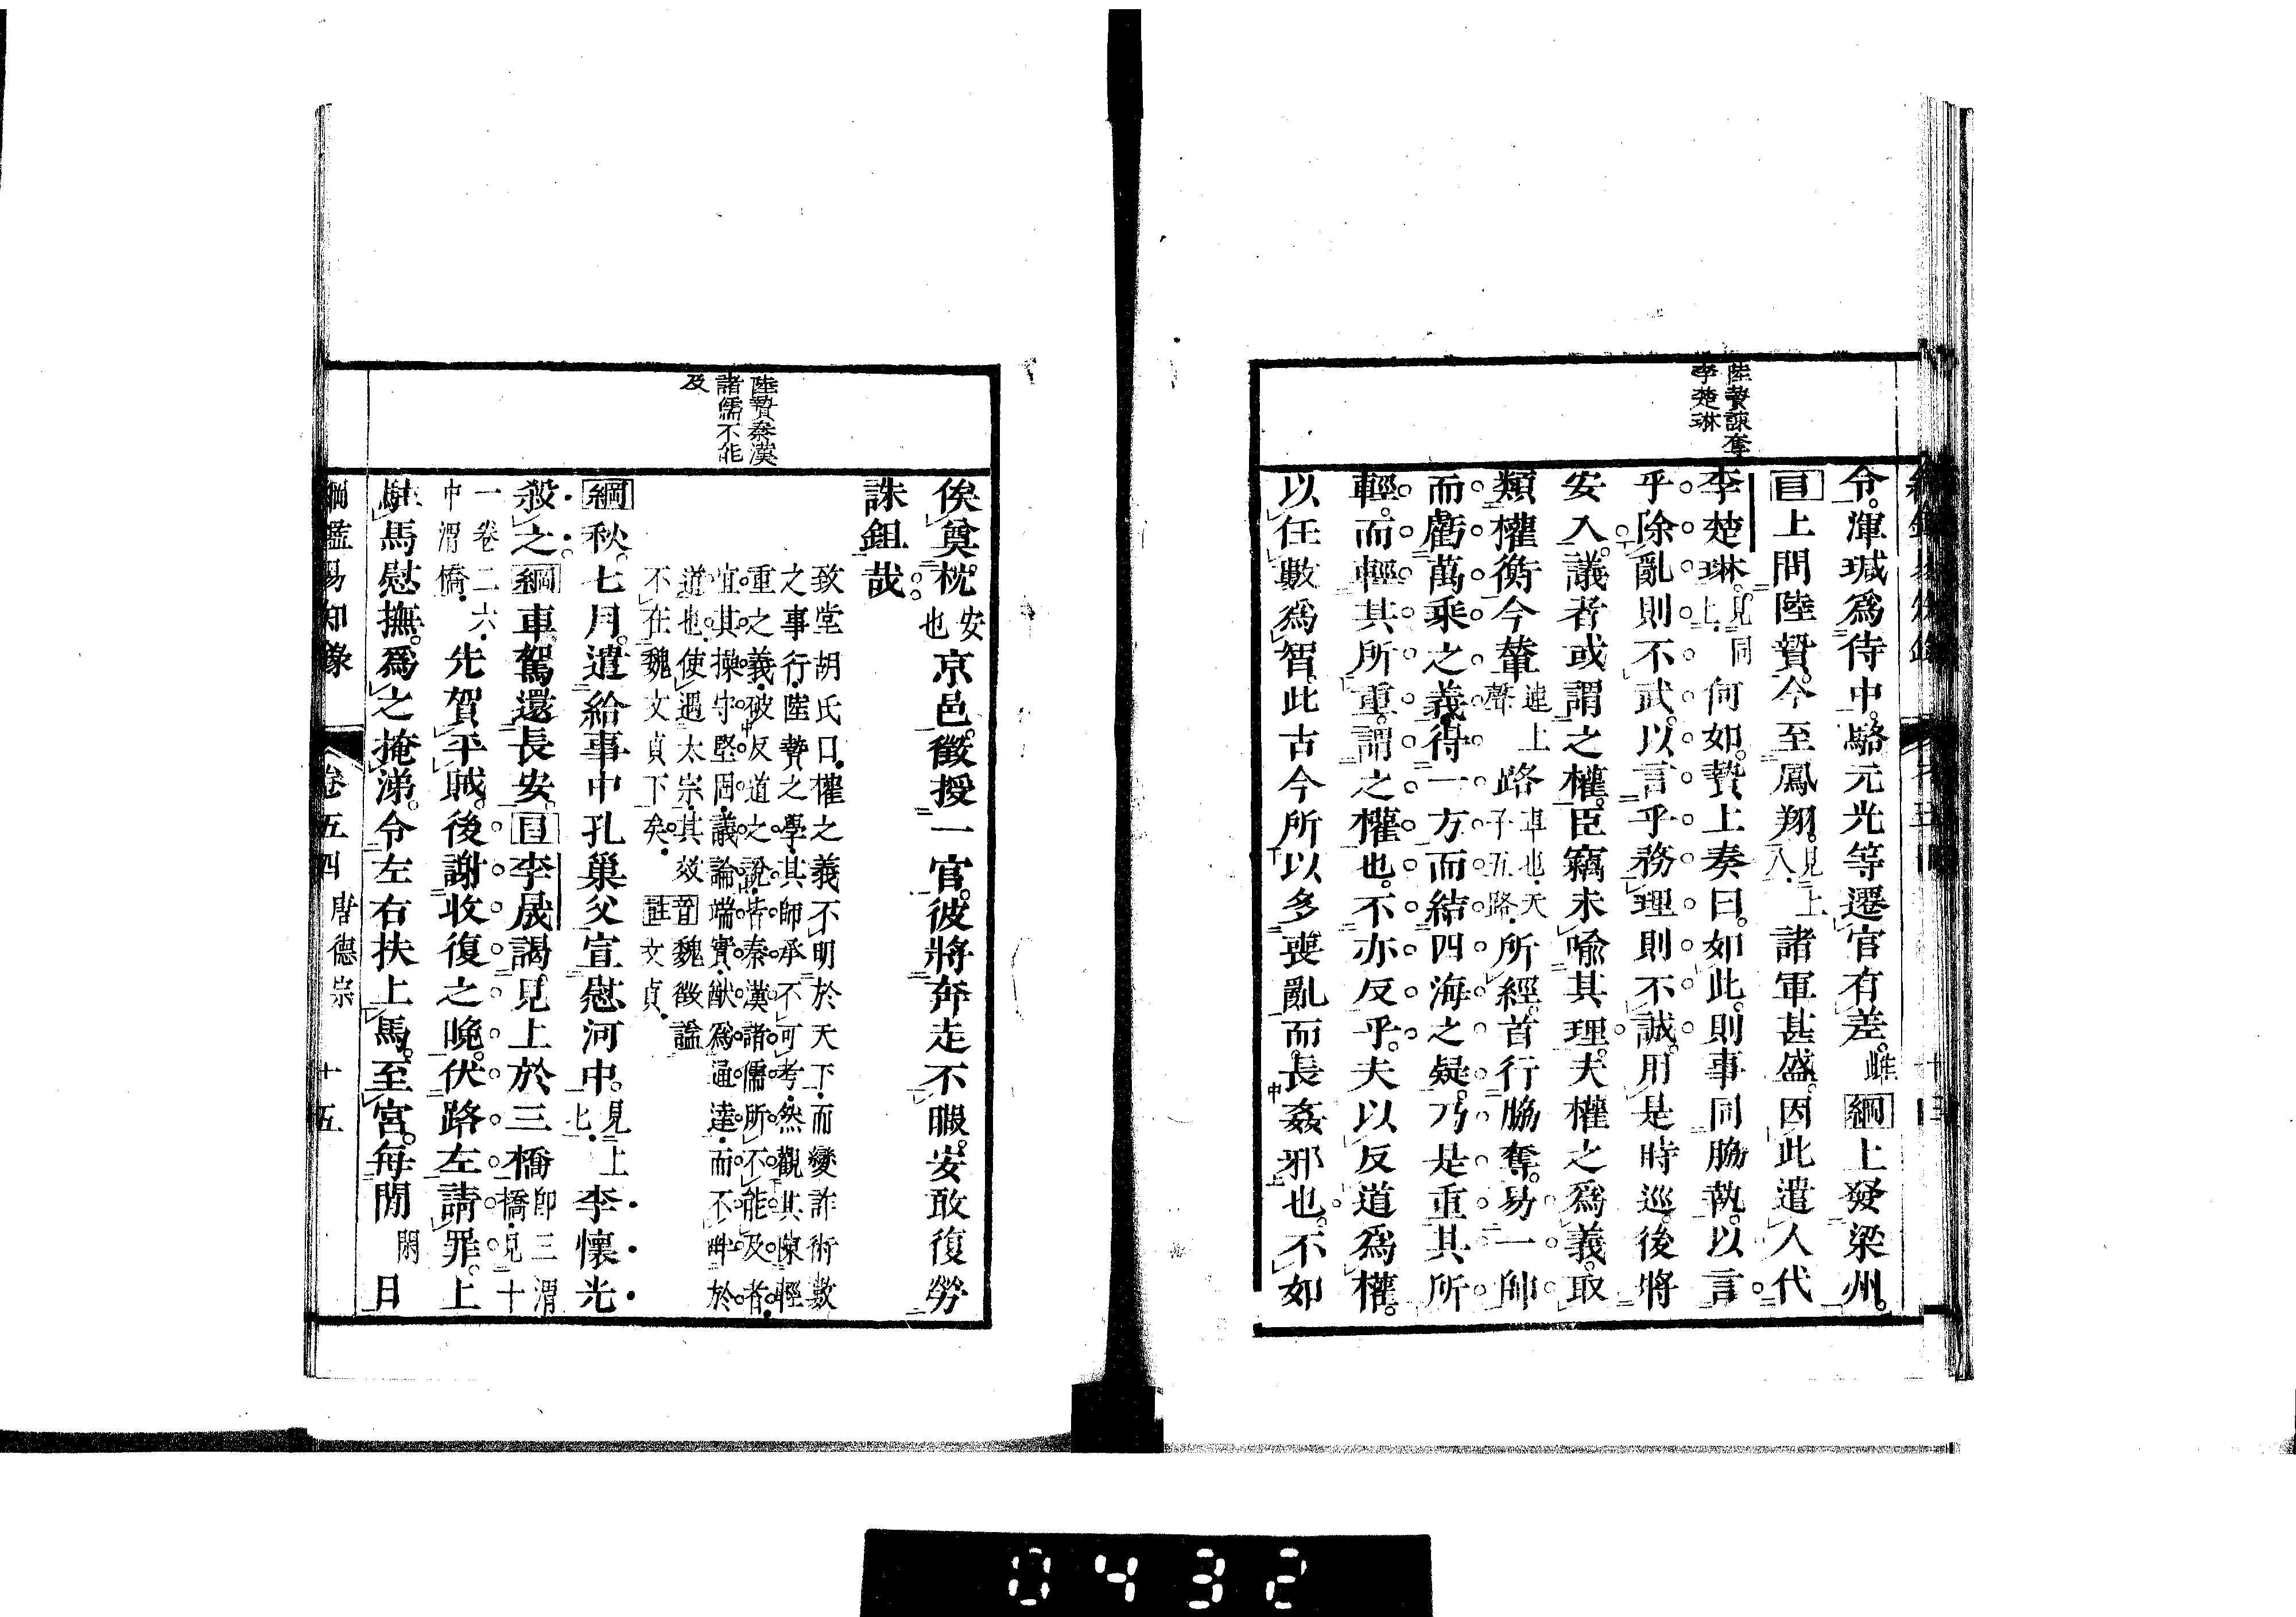 陸贄諫奪
李楚琳
令。渾瑊爲侍中。駱元光等遷官有差。雌綱上發梁州。
目上問陸贄。今至鳳翔。見上八。諸軍甚盛。因此遣人代
李楚琳。見同上。何如。贄上奏曰。如此。則事同脇執。以言
乎除亂則不武。以言乎務理則不誠。用是時巡。後將
安入。議者或謂之權。臣竊未喻其理。夫權之爲義。取
類權衡。今輦連上聲路車也。天子五路。所經。首行脇奪。易一帥
而虧萬乘之義。得一方而結四海之疑。乃是重其所
輕。而輕其所重。謂之權也。不亦反乎。夫以反道爲權。
以任數爲智。此古今所以多喪亂而長姦邪也。不如
陸贄秦漢
諸儒不能
及
俟奠枕安也京邑。徵授一官。彼將奔走不暇。安敢復勞
誅鉏哉。
致堂胡氏曰。權之義不明於天下。而變詐術數
之事行。陸贄之學。其師承不可考。然觀其陳輕
重之義。破反道之說。皆秦漢諸儒所不能及者。
宜其操守堅固。議論端實。猷爲通達。而不畔於
道也。使遇太宗。其效
不在魏文貞下矣。註文貞。音魏徵諡
綱秋。七月。遣給事中孔巢父宣慰河中。見上七。李懷光
殺之。綱車駕還長安。目李晟謁見上於三橋即三渭橋。見十
一卷二六。中渭橋。先賀平賊。後謝收復之晚。伏路左請罪。上
駐馬慰撫。爲之掩涕。令左右扶上馬。至宮。每閒閑日
綱鑑易知錄 卷五四 唐德宗 十五
0432